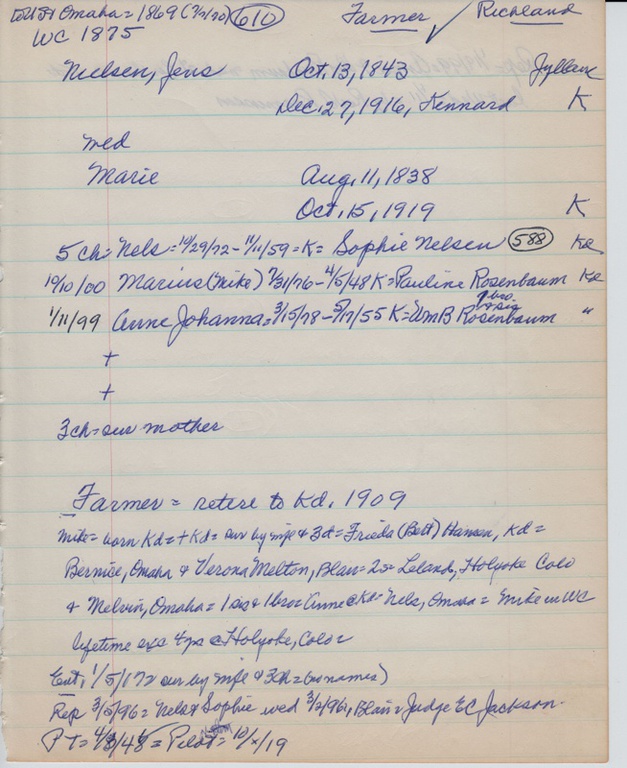 to US & Omaha = 1869 (7/1/70) 610 Farmer ✓ Richland
WC 1875
Nielsen, Jens Oct. 13, 1843 Jylland
Dec. 27, 1916, Kennard K
wed
Marie Aug. 11, 1838
Oct. 15, 1919 K
5 ch = Nels = 10/29/72 - 11/11/59 = K = Sophie Nelsen 588 Kd
19/10/00 Marius (Mike) 7/31/76 - 4/5/48 K = Pauline Rosenbaum Kd
bro. & sis
1/11/99 Anne Johanna = 3/15/78 - 5/17/55 K = Wm B Rosenbaum "
+
+
3 ch = sur mother
Farmer = retire to Kd. 1909
Mike = born Kd = + Kd = sur by wife & 3d = Frieda (Bert) Hansen, Kd =
Bernice, Omaha & Verona Melton, Blair = 2s = Leland, Holyoke Colo
& Melvin, Omaha = 1 sis & 1 bro = Anne @ Kd = Nels, Omaha = Mike in WC
lifetime exc 4 yrs @ Holyoke, Colo =
Ent. 1/5/17 = sur by wife & 3 ch = (no names)
Rep 3/5/96 = Nels & Sophie wed 3/2/96, Blair = Judge E C Jackson.
PT = = Pilot = 10/x/19